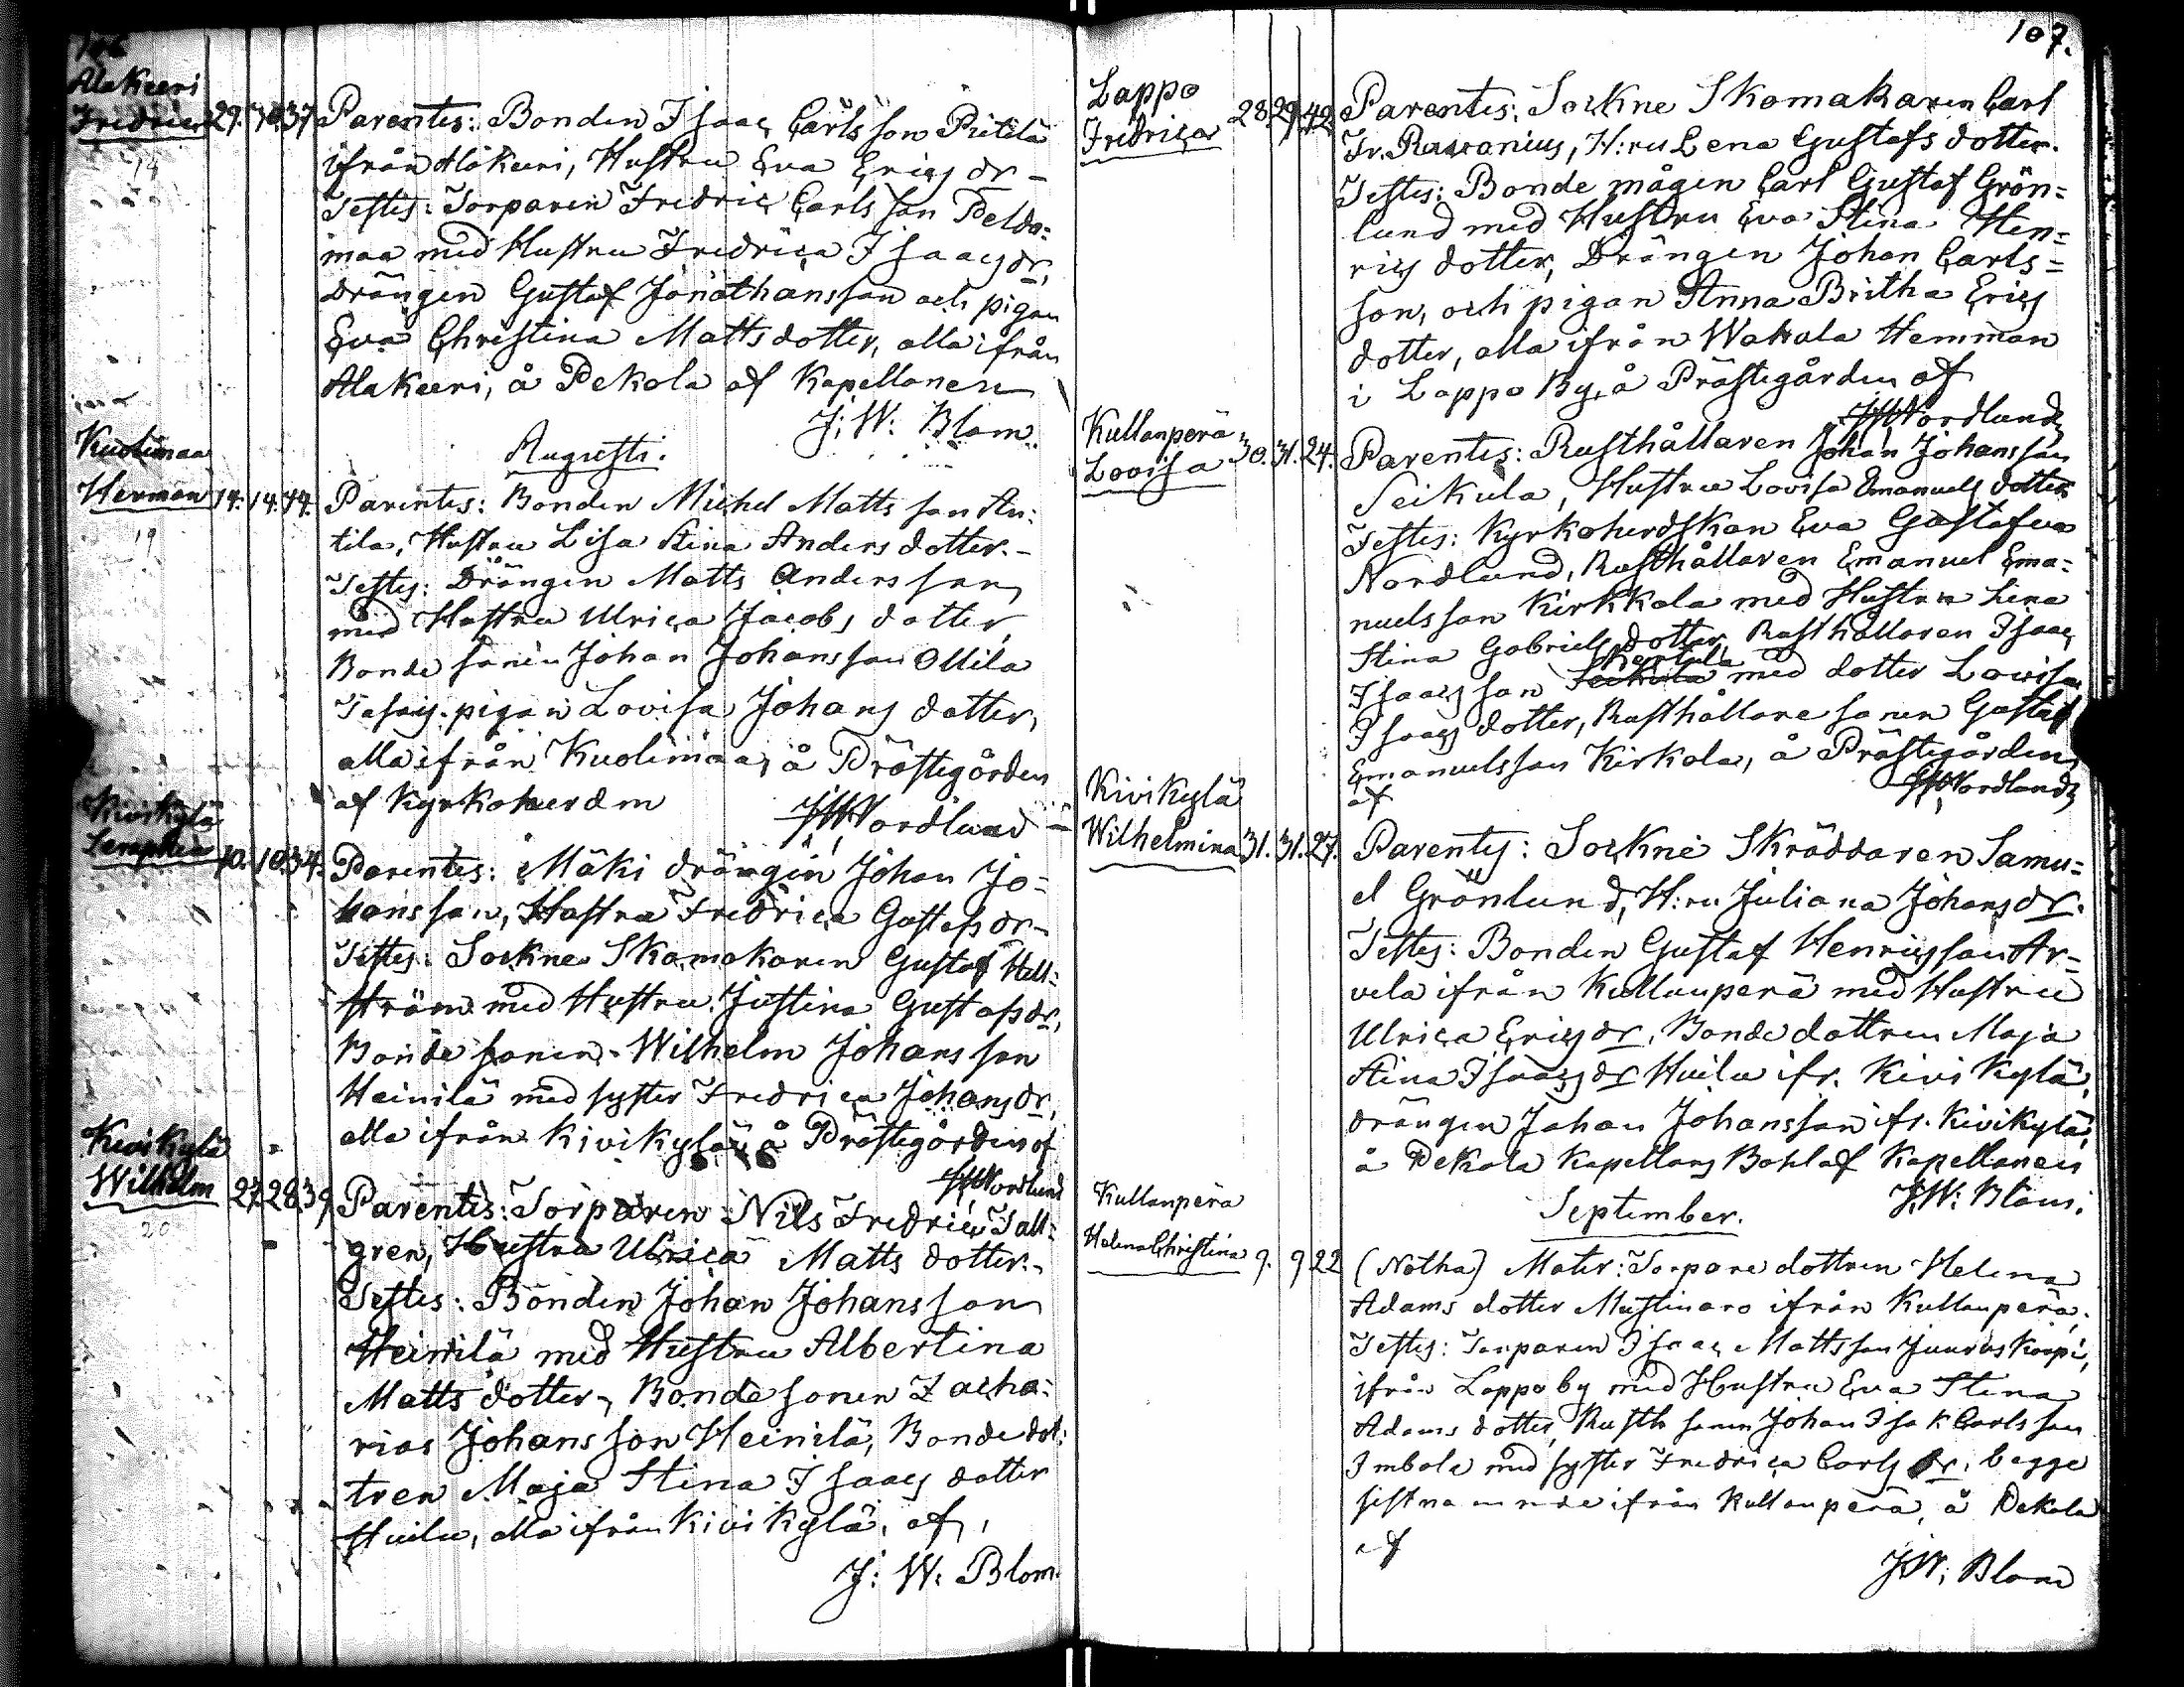 106
Alakeeri
Fredric 29. 30. 37
14
Parentes: Bonden Isaac Carlsson Pietilä
ifrån Alakeeri, Hustru Eva Erics dr –
Testes: Torparen Fredric Carlsson Peldo=
maa med Hustru Fredrica Isaacs dr,
Drängen Gustaf Jonathansson och pigan
Eva Christina Mattsdotter, alla ifrån
Alakeeri, å Pekola af Kapellanen
J: W: Blom.
Augusti.
Kuolimaa
Herman 14. 14. 44.
19
Parentes: Bonden Michel Mattsson An=
tila, Hustru Lisa Stina Andersdotter. –
Testes: Drängen Matts Andersson
med Hustru Ulrica Jacobs dotter,
Bonde sonen Johan Johansson Ollila
pigan Lovisa Johans dotter,
alla ifrån Kuolimaa, å Prästegården
af Kyrkoherden
Nordlund
Kivikylä
Seraphia 10. 10. 34.
Parentes: Mäki drängen Johan Jo=
hansson, Hustru Fredrica Gustafs dr –
Testes: Sockne Skomakaren Gustaf Hell=
ström med Hustru Justina Gustafsdr,
Bonde sonen Wilhelm Johansson
Heinilä med syster Fredrica Johansdr,
alla ifrån Kivikylä, å Prästegården af
Nordlund
Kivikylä
Wilhelm 27. 28. 39
20
Parentes: Torparen Nils Fredric Tall=
gren, Hustru Ulrica Matts dotter. –
Testes: Bonden Johan Johansson
Heinilä med Hustru Albertina
Matts dotter, Bonde sonen Zacha=
rias Johansson Heinilä, Bonde dot=
tren Maja Stina Isaacs dotter
Huilu, alla ifrån Kivikylä, af
J: W: Blom.
107.
Lappo
Fredrica 28. 29. 42
Parentes: Sockne Skomakaren Carl
Fr. H:ru Lena Gustafs dotter.
Testes: Bonde mågen Carl Gustaf Grön=
lund med Hustru Eva Stina Hen=
rics dotter, Drängen Johan Carls=
son, och pigan Anna Britha Erics
dotter, alla ifrån Hemman
i Lappo By, å Prästegården af
Nordlund
Kullanperä
Lovisa 30. 31. 24.
Parentes: Rusthållaren Johan Johansson
Seikula, Hustru Lovisa Emanuels dotter
Testes: Kyrkoherdskan Eva Gustafva
Nordlund, Rusthållaren Emanuel Ema=
nuelsson Kirkkola med Hustru Lena
Stina Gabriels dotter, Rusthållaren Isaac
Isaacsson med dotter Lovisa
Isaacs dotter, Rusthållare sonen Gustaf
Emanuelsson Kirkola, å Prästegården
af
Nordlund
Kivikylä
Wilhelmina 31. 31. 27.
Parentes: Sockne Skräddaren Samu=
el Grönlund, H:ru Juliana Johans dr.
Testes: Bonden Gustaf Henricsson Ar=
vela ifrån Kullanperä med Hustru
Ulrica Erics dr, Bonde dottren Maja
Stina Isaacs dr Huilu ifr. Kivikylä,
drängen Johan Johansson ifr. Kivikylä,
å Pekola Kapellans Bohl af Kapellanen
J. W: Blom.
September.
Kullanperä
Helena Christina 9. 9 22
(Notha) Mater: Torpare dottren Helena
Adams dotter Mustinaro ifrån Kullanperä,
Testes: Torparen Isaac Mattsson Juuruskorpi,
ifrån Lappo by med Hustru Eva Stina
Adams dotter, Rusth sonen Johan Isak Carlsson
Imbola med syster Fredrica Carls dr, begge
sistnämnde ifrån Kullanperä, å Pekola
af
J. W: Blom